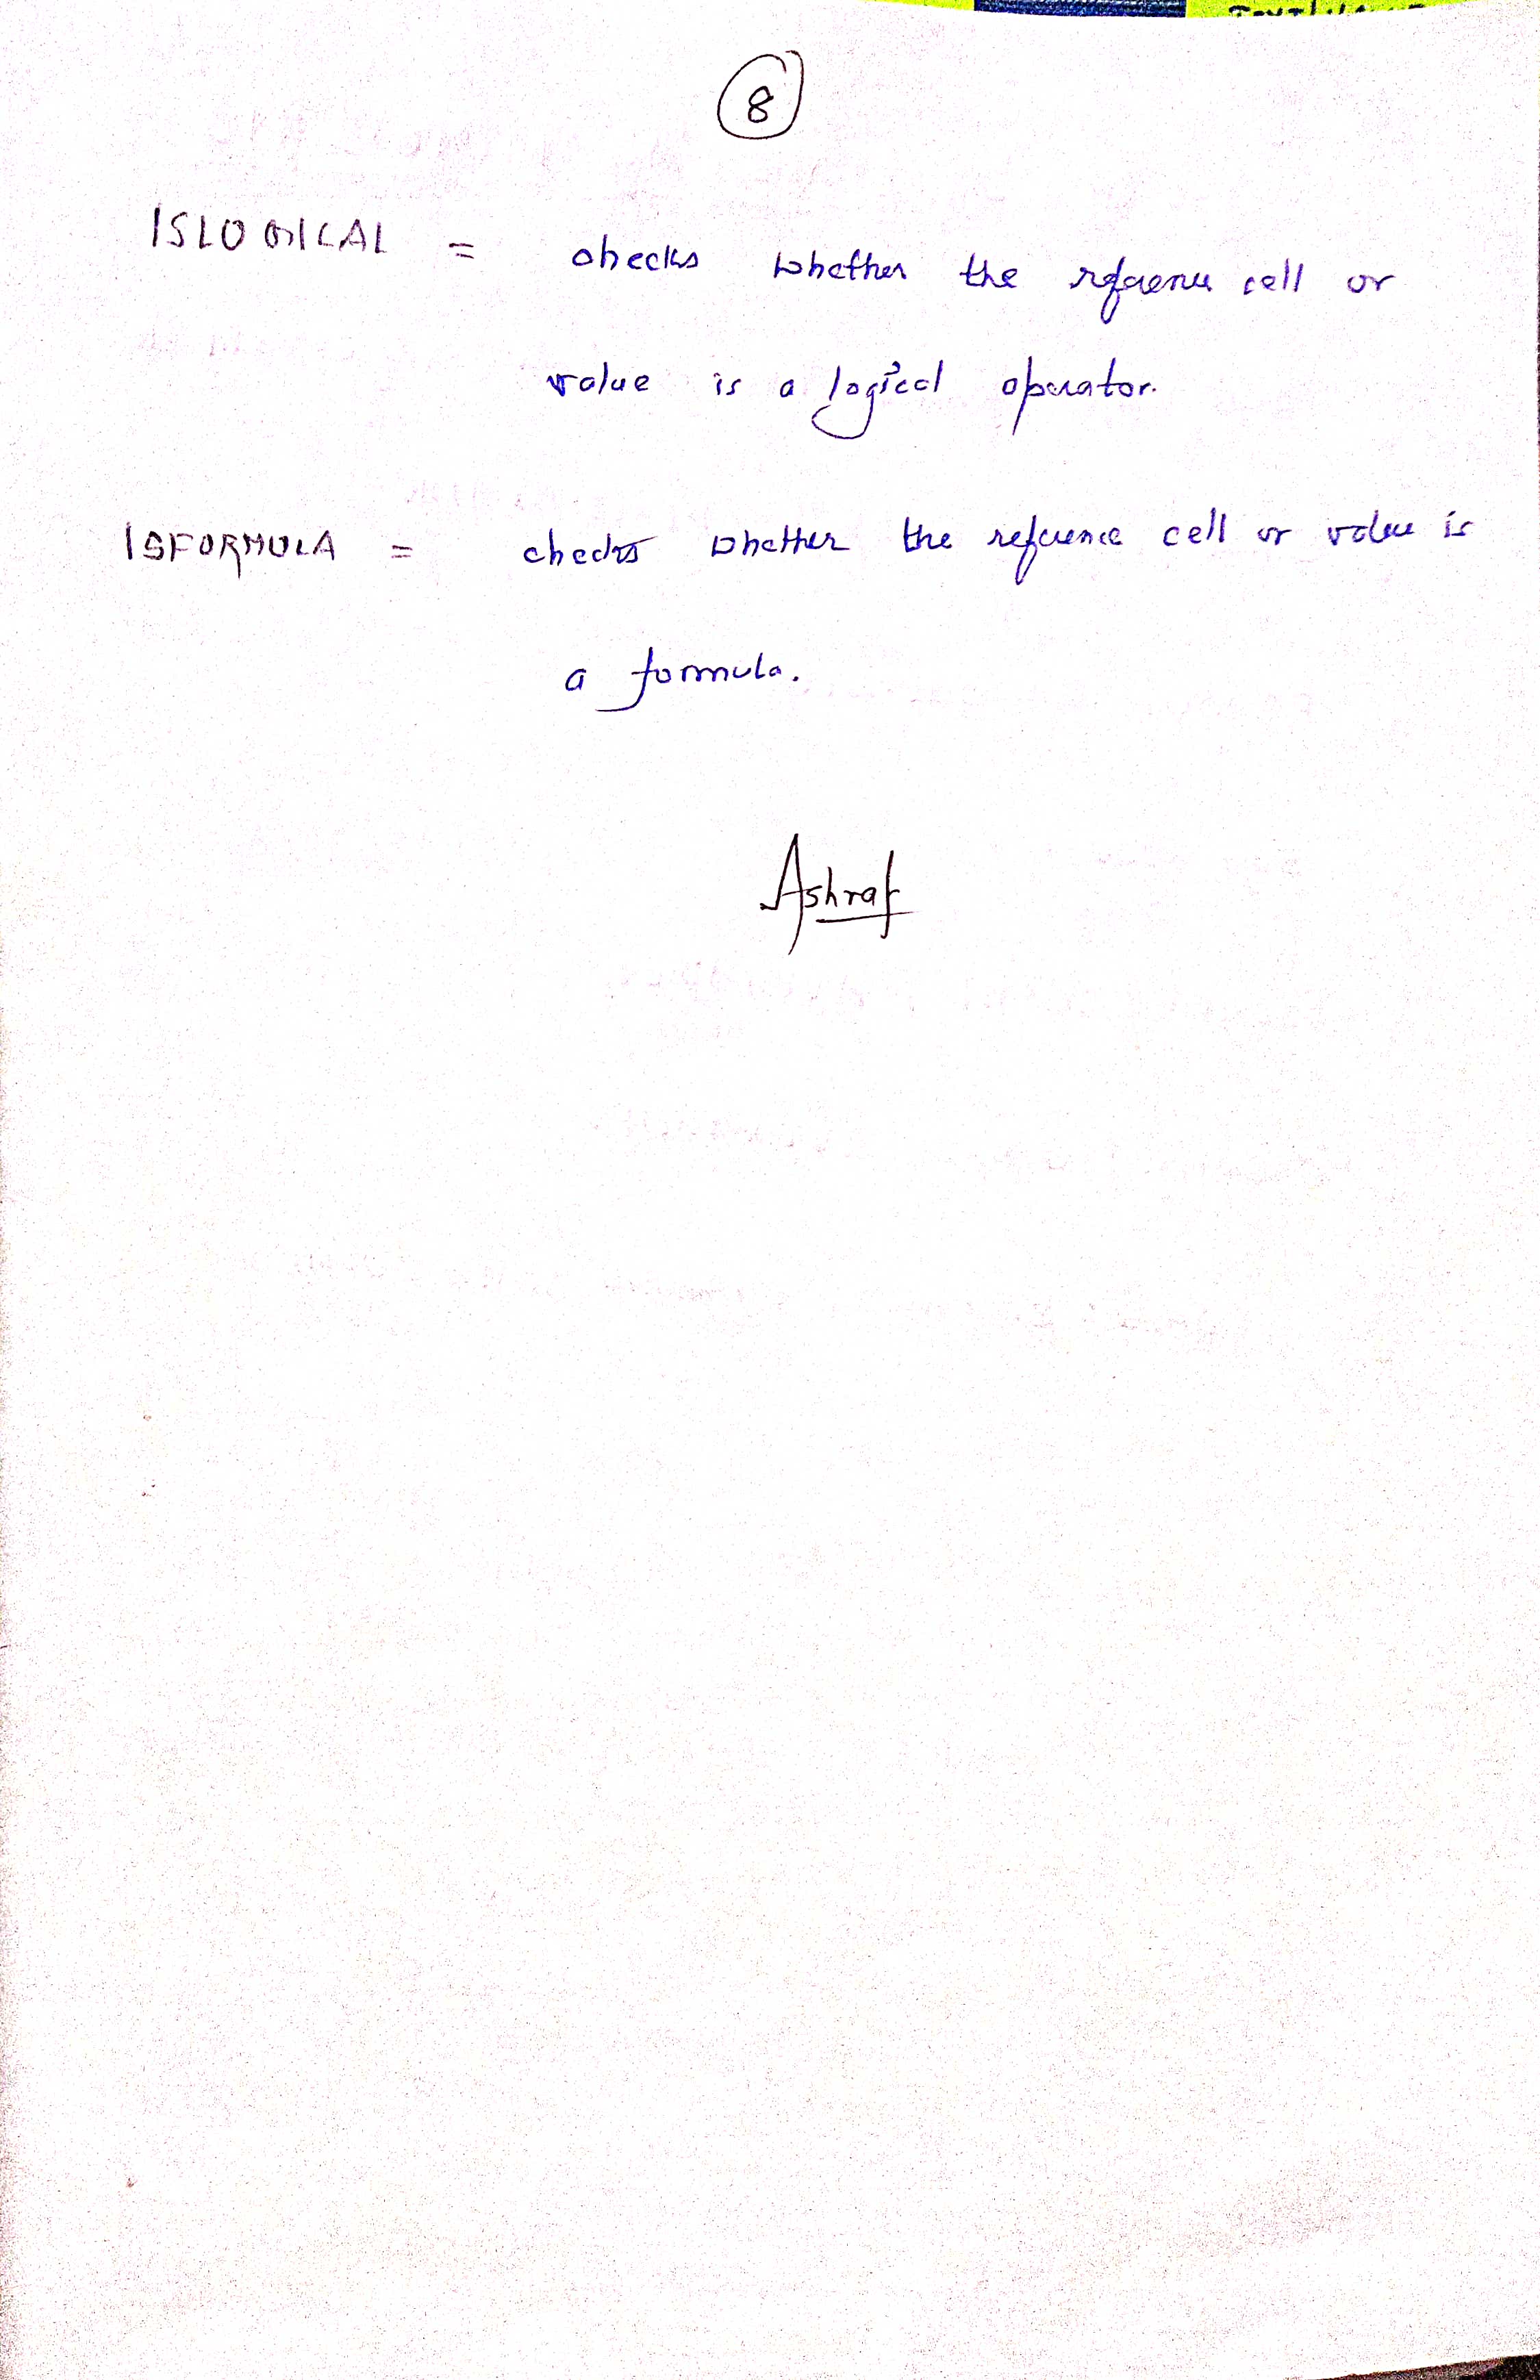 8
ISLOGICAL = checks whether the reference cell or
value is a logical operator.
ISFORMULA = checks whether the reference cell or value is
a formula.
Ashraf